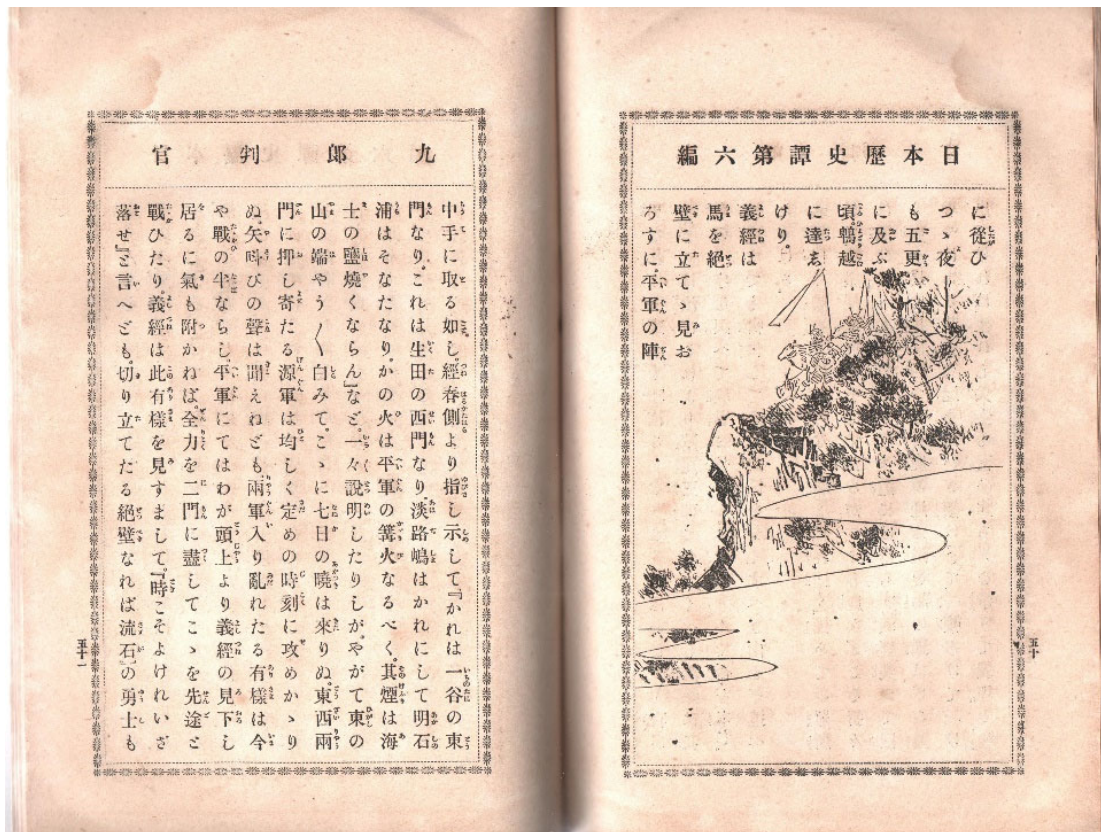 日本歷史譚第六編
に從ひ
つゝ夜
も五更
に及ぶ
頃鵯越
に達し
けり。
義經は
馬を絶
壁に立てゝ見お
ろすに、平軍の陣
五十
九郎判官
中手に取る如し。經春側より指し示して『かれは一谷の東
門なり。これは生田の西門なり、淡路嶋はかれにして明石
浦はそなたなり。かの火は平軍の篝火なるべく、其煙は海
士の鹽燒くならん』など、一々說明したりしが、やがて東の
山の端やう〳〵白みて、こゝに七日の曉は來りぬ。東西兩
門に押し寄たる源軍は均しく定めの時刻に攻めかゝり
ぬ。矢叫びの聲は聞えねども、兩軍入り亂れたる有樣は今
や戰の半ならし。平軍にてはわが頭上より義經の見下し
居るに氣も附かねば全力を二門に盡してこゝを先途と
戰ひたり。義經は此有樣を見すまして、『時こそよけれいざ
落せ』と言へども、切り立てたる絶壁なれば流石の勇士も
五十一